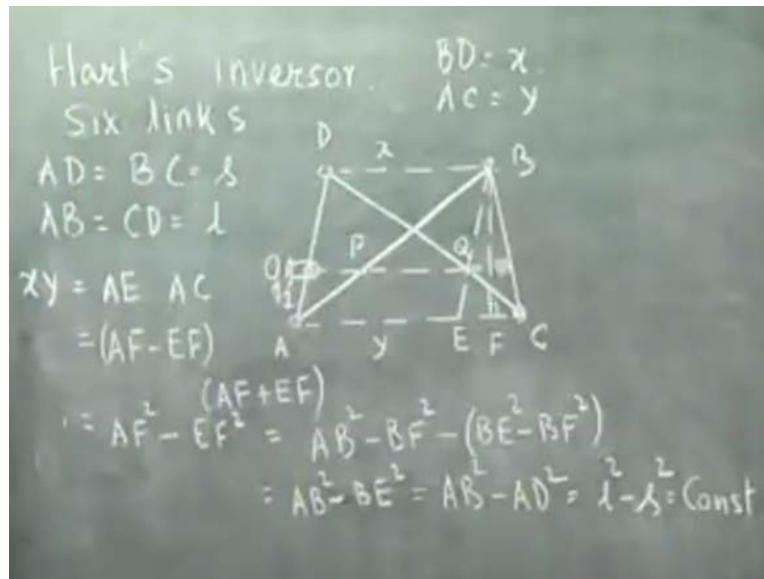 Hart's inversor.
Six links
BD = x.
AC = y
AD = BC = s
AB = CD = l
D x B
O P Q
h
A y E F C
xy = AE AC
= (AF-EF)
(AF+EF)
= AF² - EF² = AB² - BF² - (BE² - BF²)
= AB² - BE² = AB² - AD² = l² - s² = Const